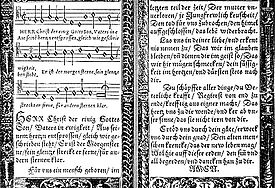 HERR Christ der einig Gottes Son, Vaters in e
Aus seim hertzen entsprossen, gleich wie geschrie
wigkeit,
ben steht, Er ist der morgensterne, sein glentze
streckt er ferne, für andern sternen klar.
HERR Christ der einig Gottes
Son / Vaters in ewigkeit / Aus seim
hertzen entsprossen / gleich wie geschrieben
steht / Er ist der Morgenster
ne / sein glentze streckt er ferne / für an
dern sternen klar.
Für uns ein mensch geboren / im
letzten teil der zeit / Der mutter un
verloren / jr Jungfrewlich keuscheit /
Den tod für uns zubrochen / den himel
auffgeschlossen / das leben widerbracht.
Las uns in deiner liebe / und erkent
nis nemen zu / Das wir im glauben
bleiben / und dienen im geist so / das
wir hie mügen schmecken / dein süssig
keit im hertzen / und dürsten stets nach
dir.
Du schöpffer aller dinge / du veter
liche krafft / Regirst von end zu
ende / krefftig aus eigner macht / Das
hertz uns zu dir wende / und ker ab un
ser sinne / das sie nicht irrn von dir.
Ertöd uns durch dein güte / erweck
uns durch dein gnad / Den alten men
schen krencke / das der new leben mag /
Wol hie auff dieser erden / den sinn und
all begerden / und dancken han zu dir.
AMEN.